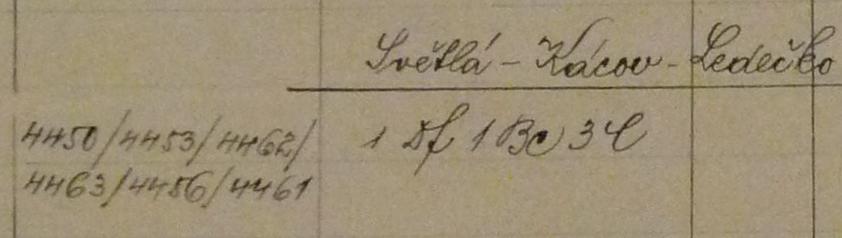 Světlá - Kácov - Ledečko
4450/4453/4462/ 1 Df 1 Bc 3 C
4463/4456/4461